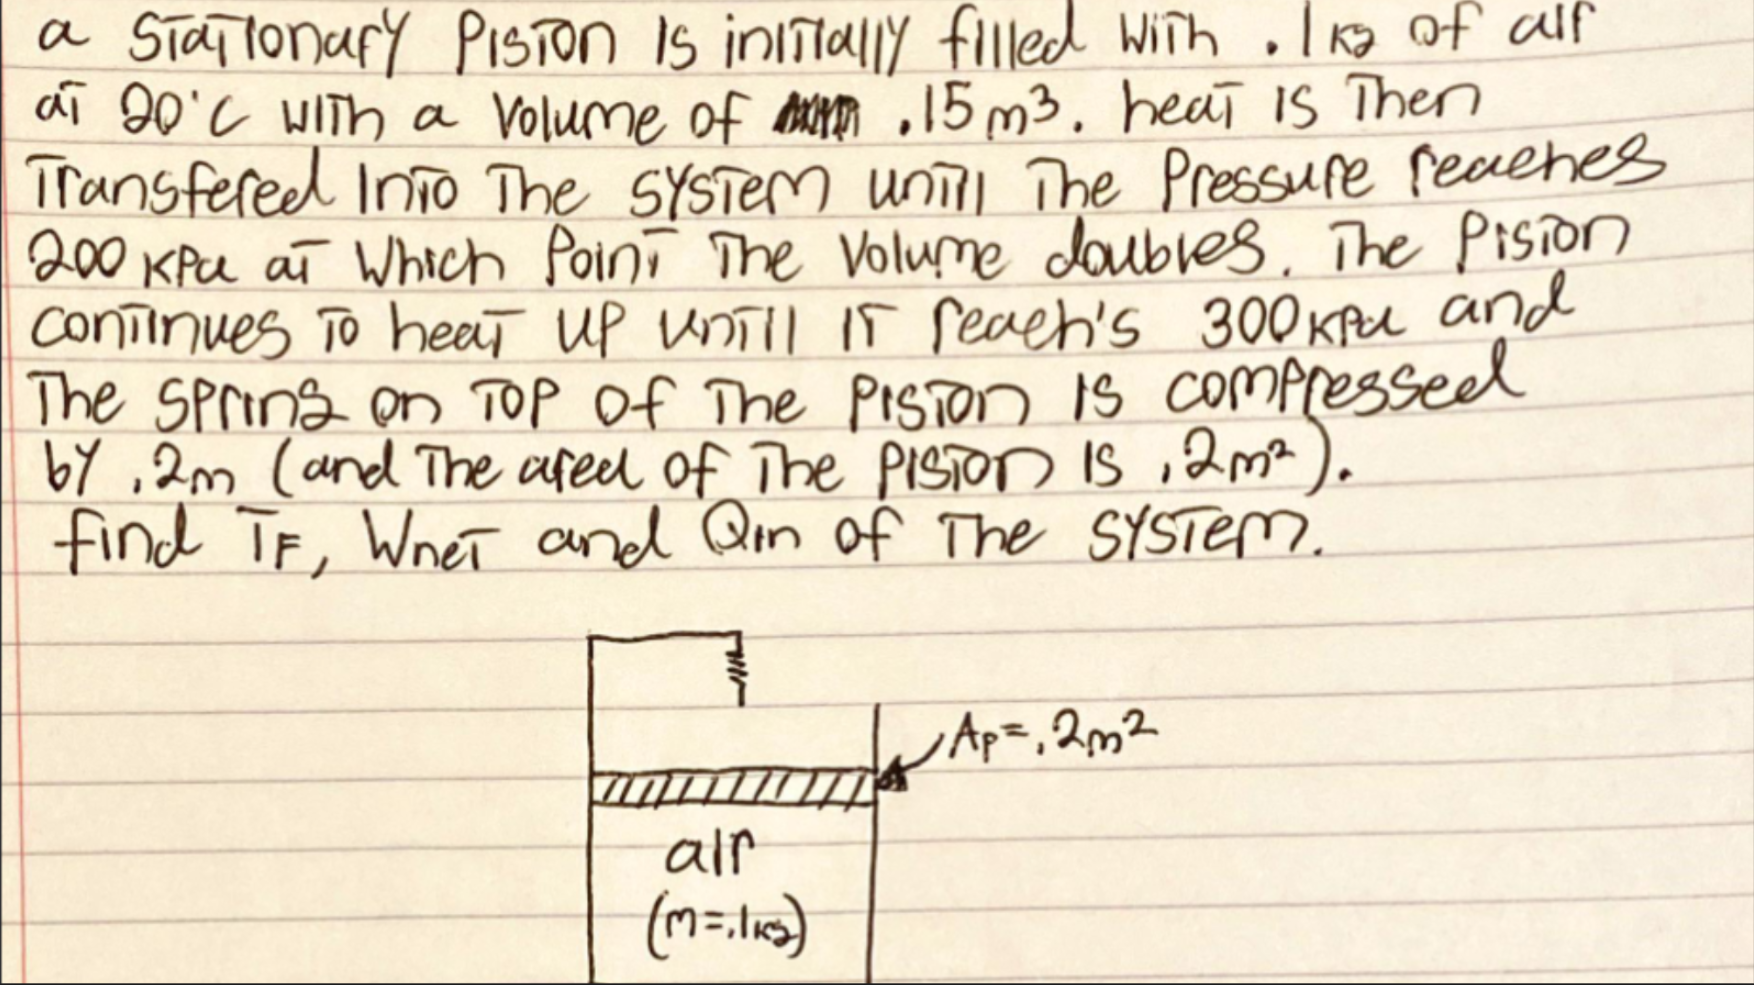 a stationary piston is initially filled with .1kg of air
at 20°C with a volume of .15m³. heat is then
transfered into the system untill the pressure reaches
200 kPa at which point the volume doubles. The piston
continues to heat up untill it reach's 300kPa and
the spring on top of the piston is compressed
by .2m (and the area of the piston is .2m²).
find TF, Wnet and Qin of the system.
Ap=.2m²
air
(m=.1kg)